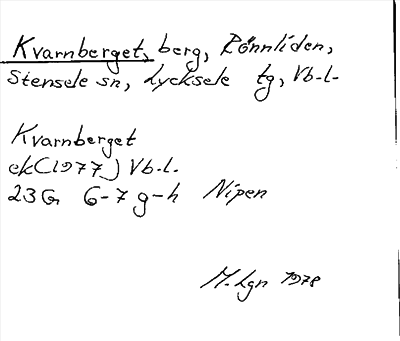 Kvarnberget, berg, Rönnliden,
Stensele sn, Lycksele tg, Vb-l.
Kvarnberget
ek (1977) Vb-l.
23G 6-7 g-h Nipen
M. Lgn 1978